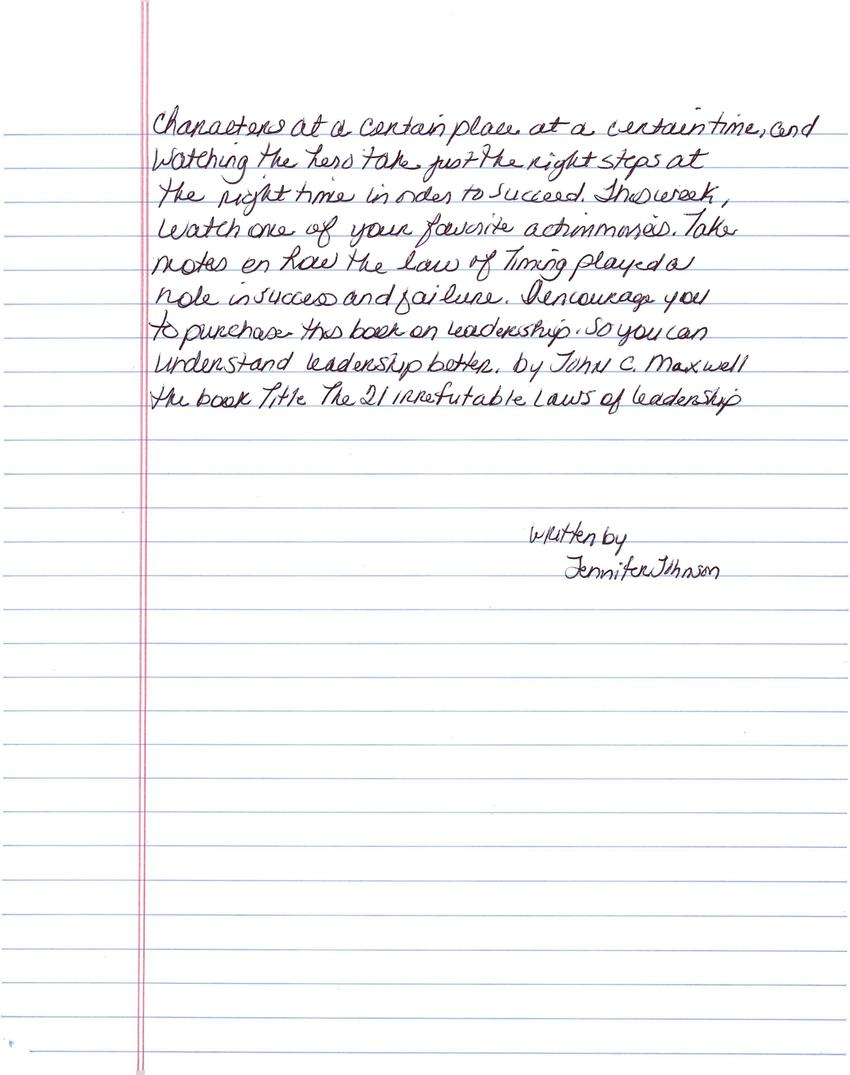 Characters at a certain place at a certain time, and
Watching the hero take just the right steps at
the right time in order to succeed. This week,
watch one of your favorite action movies. Take
notes on how the law of Timing played a
role in success and failure. I encourage you
to purchase this book on leadership. So you can
understand leadership better. by John C. Maxwell
the book Title The 21 irrefutable Laws of leadership
written by
Jennifer Johnson